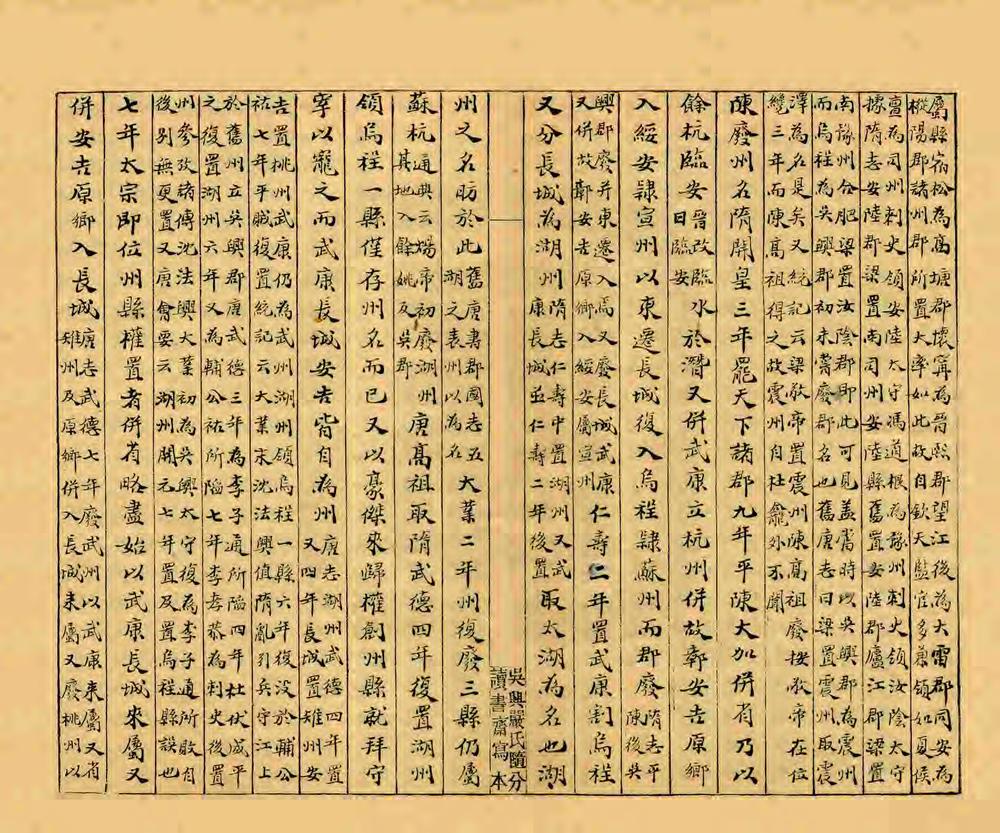 屬縣宿松為高塘郡壞寧為晉熙郡望江後為大雷郡同安為
樅陽郡諸州郡所置大率如此故自欽天監官多兼領如夏侯
亶為司州刺史領安陸太守馮道根為豫州刺史領汝陰太守
據隋志安陸郡梁置南司州安陸縣舊置安陸郡廬江郡梁置
南豫州合肥梁置汝陰郡即此可見盖當時以吳興郡為震州
而烏程為吳興郡初未嘗廢郡名也舊唐志曰梁置震州取震
澤為名是矣又統記云梁敬帝置震州陳高祖廢按敬帝在位
纔三年而陳高祖得之故震州自杜龕外不聞
陳廢州名隋開皇三年罷天下諸郡九年平陳大加併省乃以
餘杭臨安晉改臨曰臨安水於潛又併武康立杭州併故鄣安吉原鄉
入綏安隸宣州以東遷長城復入烏程隸蘇州而郡廢隋志平陳後吳
興郡廢并東遷入焉又廢長城武康又併故鄣安吉原鄉入綏安屬宣州仁壽二年置武康割烏程
又分長城為湖州隋志仁壽中置湖州又武康長城並仁壽二年後置取太湖為名也湖
吳興嚴氏隨分
讀書齋寫本
州之名昉於此舊唐書郡國志五湖之表州以為名大業二年州復廢三縣仍屬
蘇杭通典云煬帝初廢湖州其地入餘姚及吳郡唐高祖取隋武德四年復置湖州
領烏程一縣僅存州名而已又以豪傑來歸權創州縣就拜守
宰以寵之而武康長城安吉皆自為州唐志湖州武德四年置又四年長城置雉州安
吉置桃州武康仍為武州湖州領烏程一縣六年復没於輔公
祐七年平賊復置統記云大業末沈法興值隋亂引兵守江上
於舊州立吳興郡唐武德三年為李子通所陷四年杜伏威平
之復置湖州六年又為輔公祐所陷七年李孝恭為刺史後置
州參攷諸傳沈法興大業初為吳興太守後為李子通所敗自
後别無更置又唐會要云湖州開元七年置及置烏程縣誤也
七年太宗即位州縣權置者併省略盡始以武康長城來屬又
併安吉原鄉入長城唐志武德七年廢武州以武康来屬又省雉州及原鄉併入長城来屬又廢桃州以